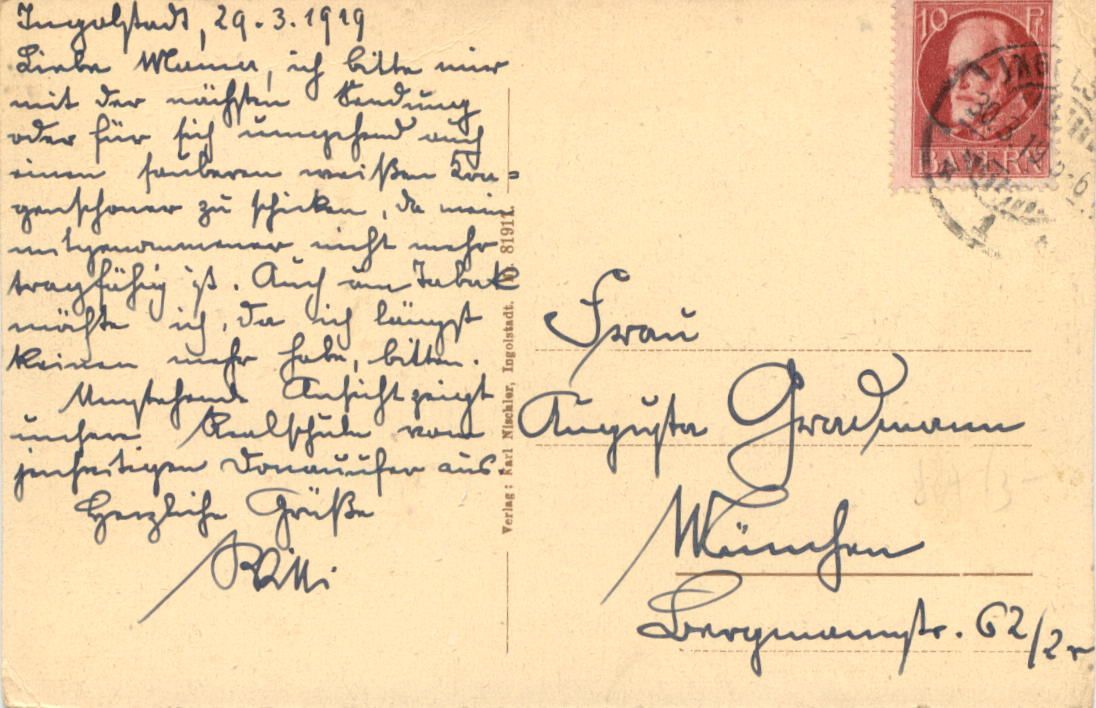 Ingolstadt, 29.3.1919
Liebe Mama, ich bitte mir
mit der nächsten Sendung
oder für sich umgehend auch
einen sauberen weißen Kra-
genschoner zu schicken, da mein
mitgenommener nicht mehr
tragfähig ist. Auch um Tabak
möchte ich, da ich längst
keinen mehr habe, bitten.
Umstehende Ansicht zeigt
unsere Realschule vom
jenseitigen Donauufer aus.
Herzliche Grüße
Willi
Verlag: Karl Nischler, Ingolstadt. 81911.
10 Pf
BAYERN
30.3.19
Frau
Augusta Gradmann
München
Bergmannstr. 62/2r